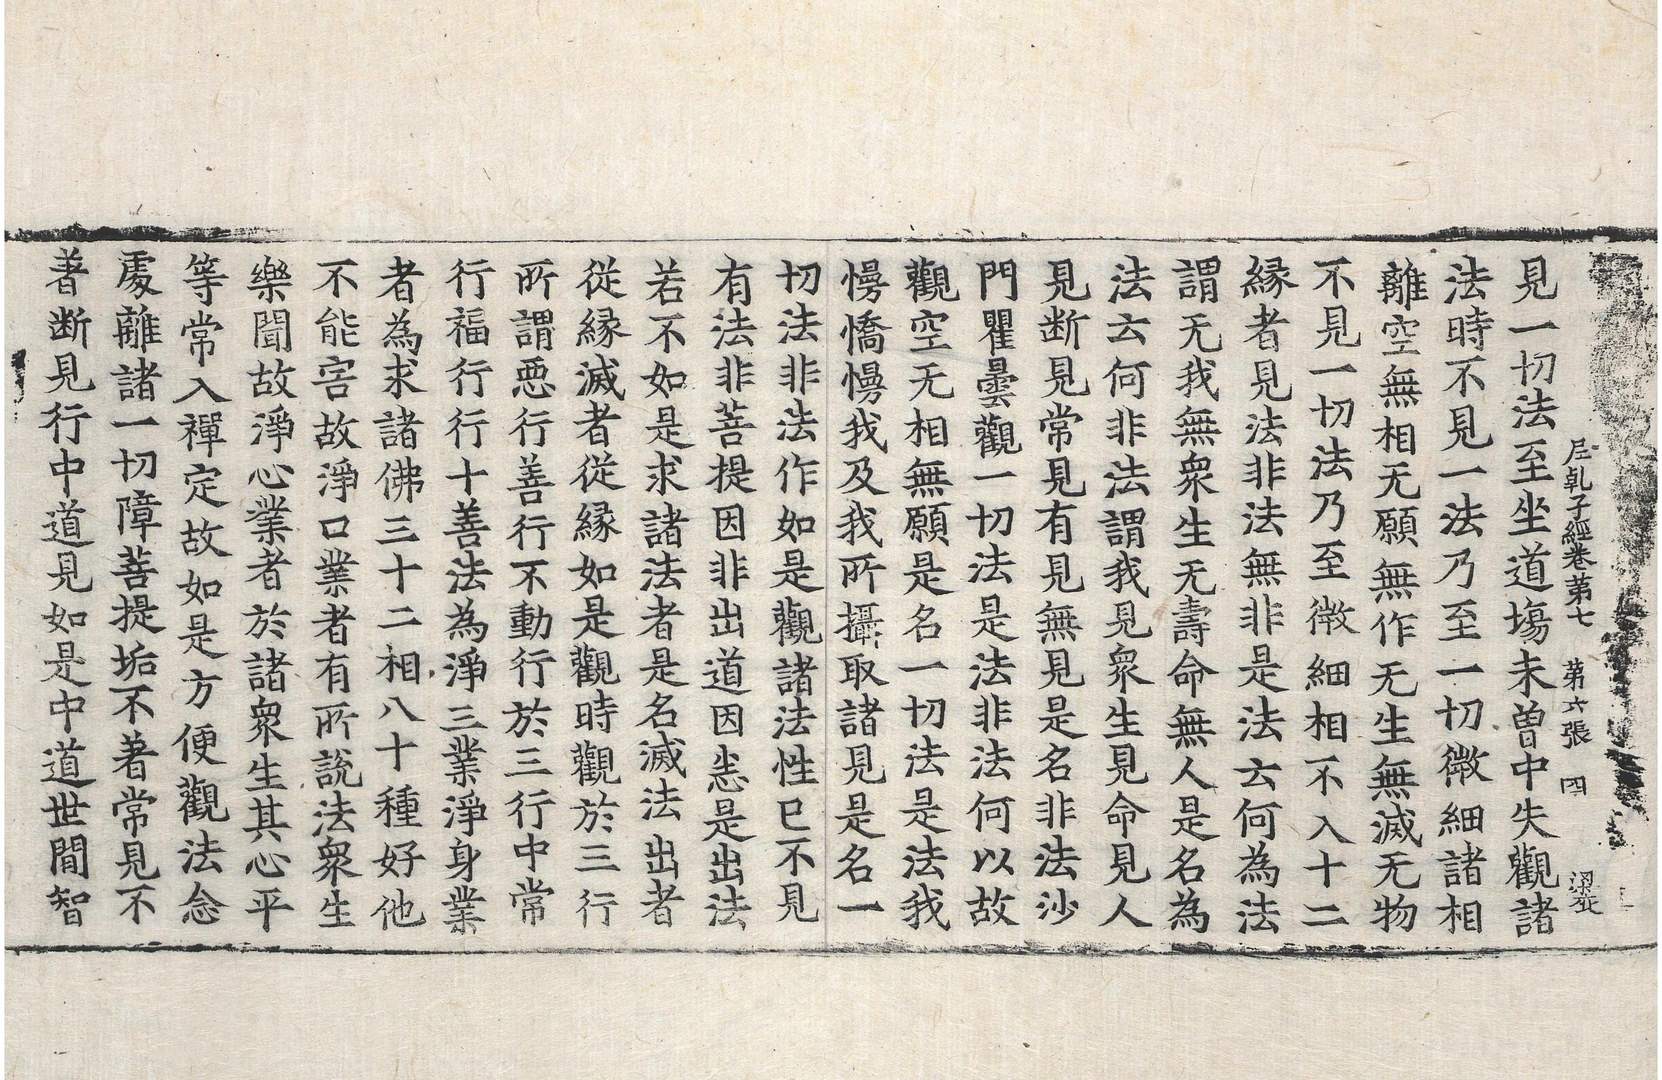 尼乹子經卷苐七　苐六張　四
見一切法至坐道塲未曽中失觀諸
法時不見一法乃至一切微細諸相
離空無相无願無作无生無滅无物
不見一切法乃至微細相不入十二
縁者見法非法無非是法云何為法
謂无我無衆生无壽命無人是名為
法云何非法謂我見衆生見命見人
見断見常見有見無見是名非法沙
門瞿曇觀一切法是法非法何以故
觀空无相無願是名一切法是法我
慢憍慢我及我所攝取諸見是名一
切法非法作如是觀諸法性已不見
有法非菩提因非出道因悉是出法
若不如是求諸法者是名滅法出者
從縁滅者從縁如是觀時觀於三行
所謂惡行善行不動行於三行中常
行福行行十善法為淨三業淨身業
者為求諸佛三十二相八十種好他
不能害故淨口業者有所說法衆生
樂聞故淨心業者於諸衆生其心平
等常入禪定故如是方便觀法念
處離諸一切障菩提垢不著常見不
著断見行中道見如是中道世間智